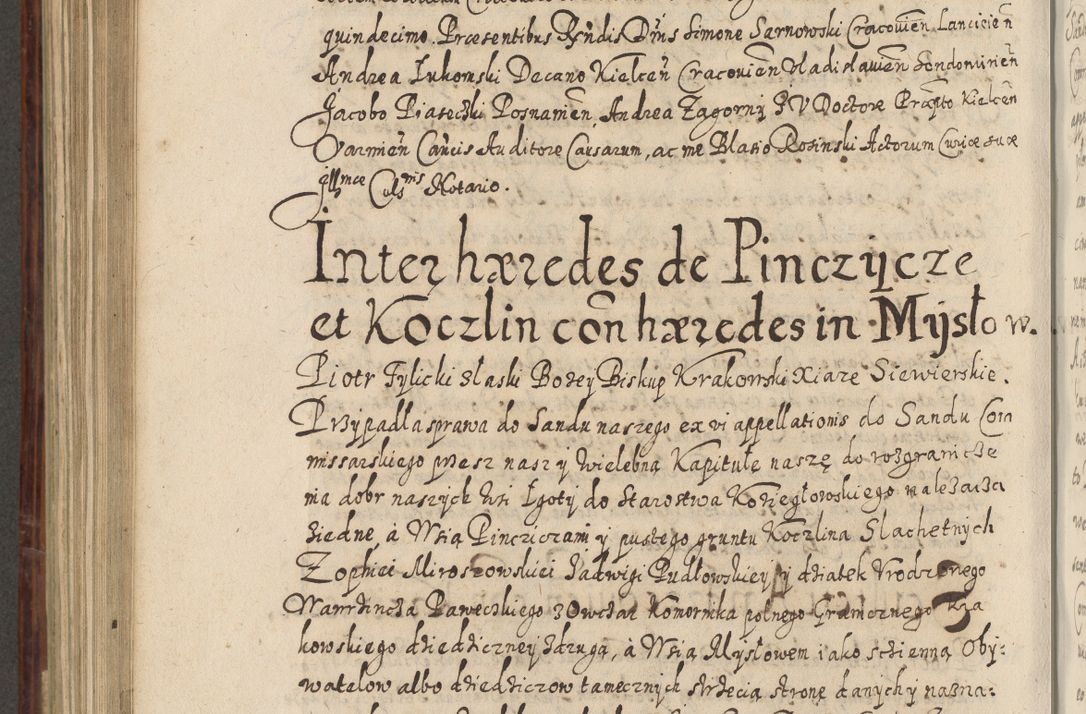 quindecimo. Præsentibus Rñdis Dñis Simone Sarnowski Cracovien̄ Lancicien̄
Andrea Lukomski Decano Kielcen̄ Cracovien̄ Vladislavien̄ Sendomirien̄
Jacobo Piaseczki Posnanien, Andrea Zagorny I V Doctore Præpto Kielcen
Varmien̄ Can̄cis Auditore Causarum, ac me Blasio Rosinski Actorum Curiæ suæ
Illmæ Celsnis Notario.
Inter hæredes de Pinczÿcze
et Koczlin con̄ hæredes in Mÿsłow.
Piotr Tylicki z łaski Bozey Biskup Krakowski Xiaze Siewierskie.
Przypadla sprawa do Sandu naszego ex vi appellationis do Sandu Com
missarskiego przez nasz y wielebną Kapitułę naszę do rozgranicze
nia dobr naszych Wsi Lgoty do Starostwa Koziegłowskiego należaiza
ziedne, à Wsią Pincziczami y pustego gruntu Koczlina Slachetnych
Zophiei Miroszowskiei Jadwigi Pudłowskiey y dziatek Vrodzonego
Wawrzincza Paweczkiego zowczał Komornika polnego Granicznego Kra
kowskiego dziedziczney zdrugą, à Wsią Mysłowem iako sczienną Oby:
watalow albo dziedziczow tamecznych strzecią stronę danych y nazna: